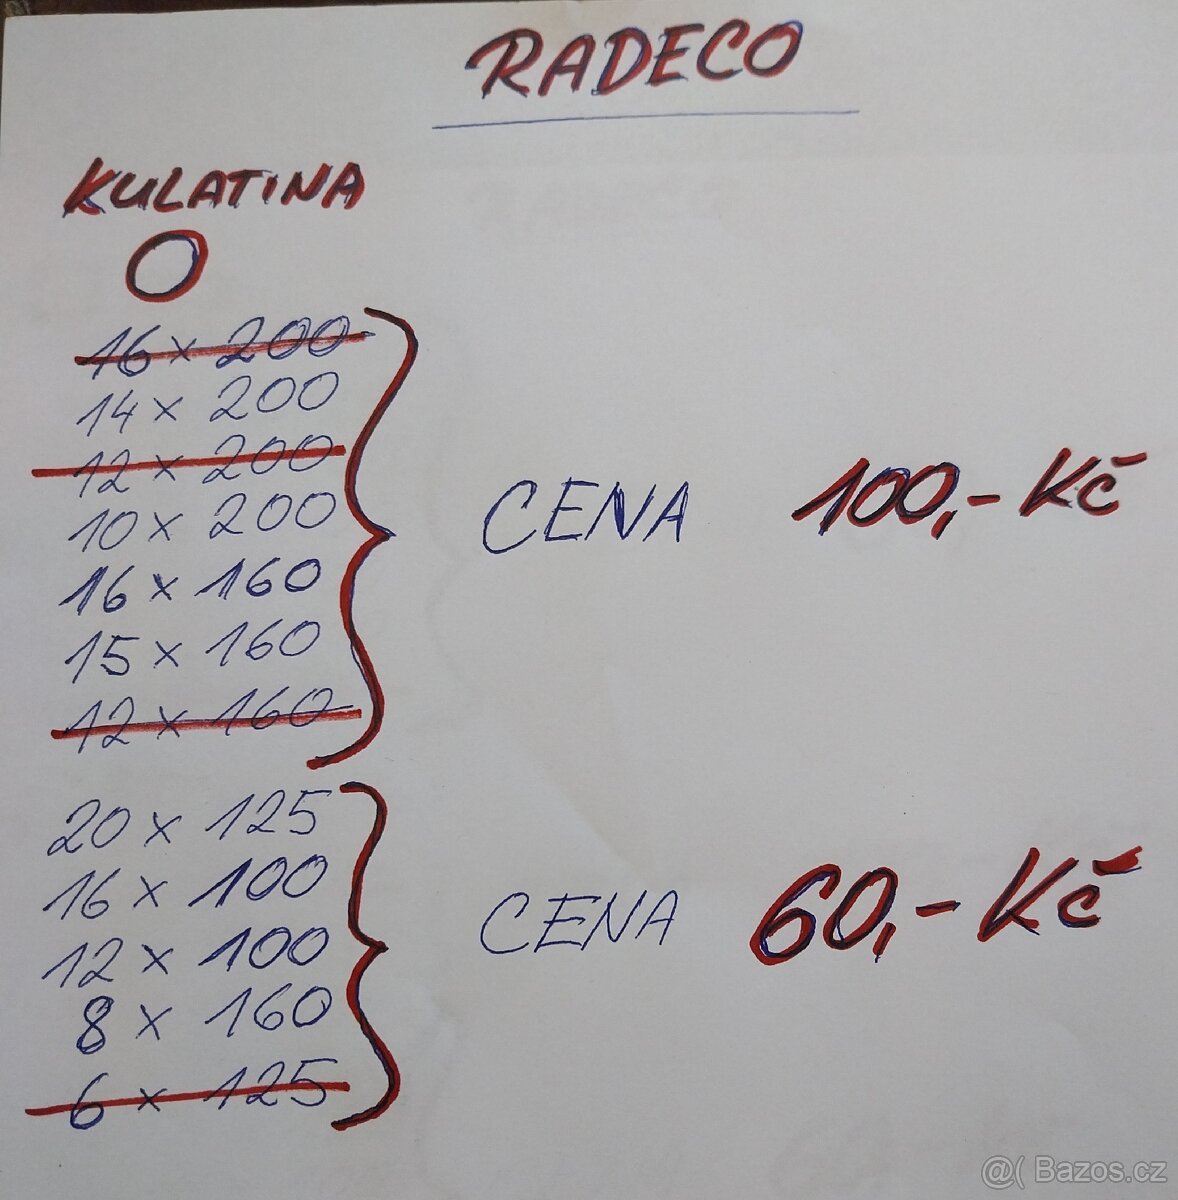 RADECO
KULATINA
16 x 200
14 x 200
12 x 200
10 x 200
16 x 160
15 x 160
12 x 160
CENA 100,- Kč
20 x 125
16 x 100
12 x 100
8 x 160
6 x 125
CENA 60,- Kč
@( Bazos.cz